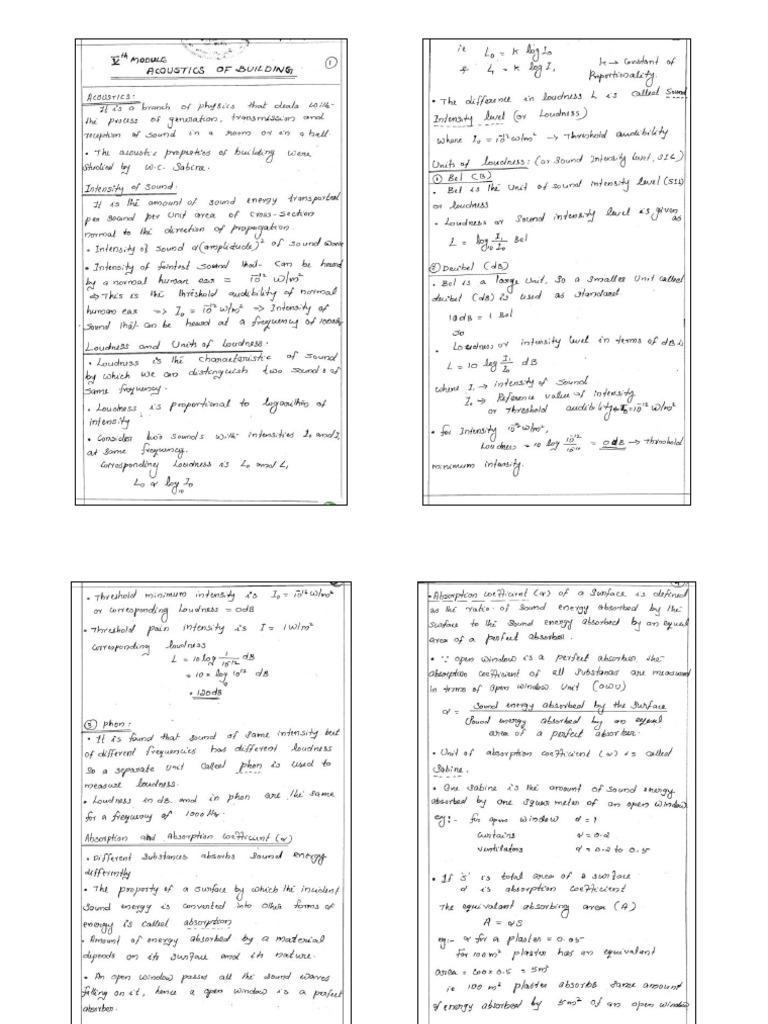 Vth MODULE
ACOUSTICS OF BUILDING
1
ACOUSTICS:
It is a branch of physics that deals with
the process of generation, transmission and
reception of sound in a room or in a hall.
• The acoustic properties of building were
studied by W.C. Sabine.
Intensity of Sound:
It is the amount of sound energy transported
per second per unit area of cross-section
normal to the direction of propagation.
• Intensity of sound α (amplitude)² of sound wave
• Intensity of faintest sound that can be heard
by a normal human ear = 10⁻¹² W/m²
⇒ This is the threshold audibility of normal
human ear ⇒ I₀ = 10⁻¹² W/m² → Intensity of
sound that can be heard at a frequency of 1000Hz
Loudness and Units of loudness:
• Loudness is the characteristic of sound
by which we can distinguish two sounds of
same frequency.
• Loudness is proportional to logarithm of
intensity
• Consider two sounds with intensities I₀ and I₁
at same frequency.
Corresponding loudness is L₀ and L₁
L₀ α log₁₀ I₀
ie L₀ = K log I₀
& L₁ = K log I₁
k → Constant of
Proportionality.
• The difference in loudness L is called Sound
Intensity level (or Loudness)
where I₀ = 10⁻¹² W/m² → Threshold audibility
Units of loudness: (or Sound Intensity level, SIL)
① Bel (B)
• Bel is the Unit of sound intensity level (SIL)
or loudness
• Loudness or Sound intensity level is given as
L = log₁₀ I₁/I₀ Bel
② Decibel (dB)
• Bel is a large unit, So a smaller unit called
decibel (dB) is used as standard
10dB = 1 Bel
So
• Loudness or intensity level in terms of dB is
L = 10 log I₁/I₀ dB
where I₁ → intensity of sound
I₀ → Reference value of intensity
or Threshold audibility I₀ = 10⁻¹² W/m²
• for Intensity 10⁻¹² W/m²,
Loudness = 10 log 10⁻¹²/10⁻¹² = 0dB → Threshold
minimum intensity.
• Threshold minimum intensity is I₀ = 10⁻¹² W/m²
or corresponding loudness = 0dB
• Threshold pain intensity is I = 1 W/m²
corresponding loudness
L = 10 log 1/10⁻¹² dB
= 10 × log 10¹² dB
= 120dB
③ phon:
• It is found that sound of same intensity but
of different frequencies has different loudness
so a separate unit called phon is used to
measure loudness.
• Loudness in dB and in phon are the same
for a frequency of 1000Hz.
Absorption and Absorption coefficient (α)
• Different substances absorbs sound energy
differently
• The property of a surface by which the incident
sound energy is converted into other forms of
energy is called absorption
• Amount of energy absorbed by a material
depends on its surface and its nature.
• An open window passes all the sound waves
falling on it, hence a open window is a perfect
absorber.
4
• Absorption coefficient (α) of a surface is defined
as the ratio of sound energy absorbed by the
surface to the sound energy absorbed by an equal
area of a perfect absorber.
• ∵ open window is a perfect absorber, the
absorption coefficient of all substances are measured
in terms of open window Unit (OWU)
α = Sound energy absorbed by the surface
Sound energy absorbed by an equal
area of a perfect absorber.
• Unit of absorption coefficient (α) is called
Sabine.
• One sabine is the amount of sound energy
absorbed by one square meter of an open window
eg:- for open window α = 1
curtains α = 0.2
ventilators α = 0.2 to 0.5
• If 's' is total area of a surface
α is absorption coefficient
The equivalent absorbing area (A)
A = αs
eg:- α for a plaster = 0.05
For 100m² plaster has an equivalent
area = 100 × 0.5 = 5m²
ie 100 m² plaster absorbs same amount
of energy absorbed by 5m² of an open window